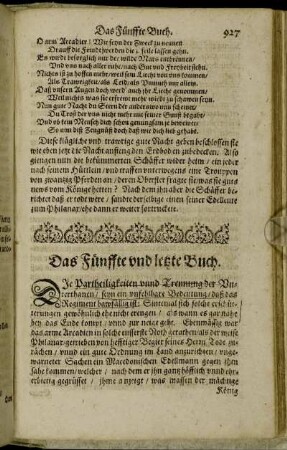 Das Fünffte Buch.
927
O arm Arcadier / Wie seyn der Zweck zu
Drauff die Freudtwerder die
Es würdt beforglich nur der wilde Mars entbrennen /
Vnd vns noch aller ruhe / nach Gut und Freyheit
Nichts ist zu hoffen mehr / weil sein Liecht von vns kommen /
Als Trawrigkeit / als Leid / als Vnmuht
Daß unsern Augen doch werd auch ihr Liecht genommen /
Weil nichts was sie erfrewt mehr wirdt zu schawen seyn.
Nun gute Nacht du Stern der andern von uns scheinest /
Du Trost der vns nicht mehr mit seiner Gunst begabt /
Vnd ob kein Mensch dich schon gnungsam je beweinet /
So am diß Zeugnüß doch daß wir dich lieb gehabt.
Diese klägliche und trawrige gute Nacht gaben beschlossen sie
wie eben jetzt die Nacht anffieng den Erdboden zubedecken. Also
giengen nun die bekümmerten Schäffer wider heim / ein jeder nach
seinem Hüttlein / und traffen unterwegens eine Troupen von
von zwantzig Pferden an / deren Oberster fragte sie was sie guts
news vom Könige hetten? Nach dem ihn aber die Schäffer berichtet
daß er todt were / sandte der selbige einen seiner Edelleute
zum Philanax / ehe dann er weiter fortruckete.
Das Fünffte vnd letzte Buch.
DIe Partheiligkeiten vnnd Trennung der Vnterthanen /
seyn ein vnfehlbare Bedeutung / daß das
Regiment bawfällig ist. Sintemal sich solche
gewöhnlich ehe nicht eregen / als wann es gar nahe
bey das Ende kompt / vnd zur neige gehe. Ebenmässig war
das arme Arcadien in solche eusserste Noth gerathen / als der weise
Philanax / getrieben von hefftiger Begier seines Herrn Todt zu
rächen / vnnd ein gute Ordnung im Land anzurichten /
Sachen ein Macedonischen Edelmann gegen ihm
sahe kommen / welcher / nach dem er ihn gantz höfflich vnnd
ehrbietig gegrüsset / jhme anzeigt / was massen der mächtige
König